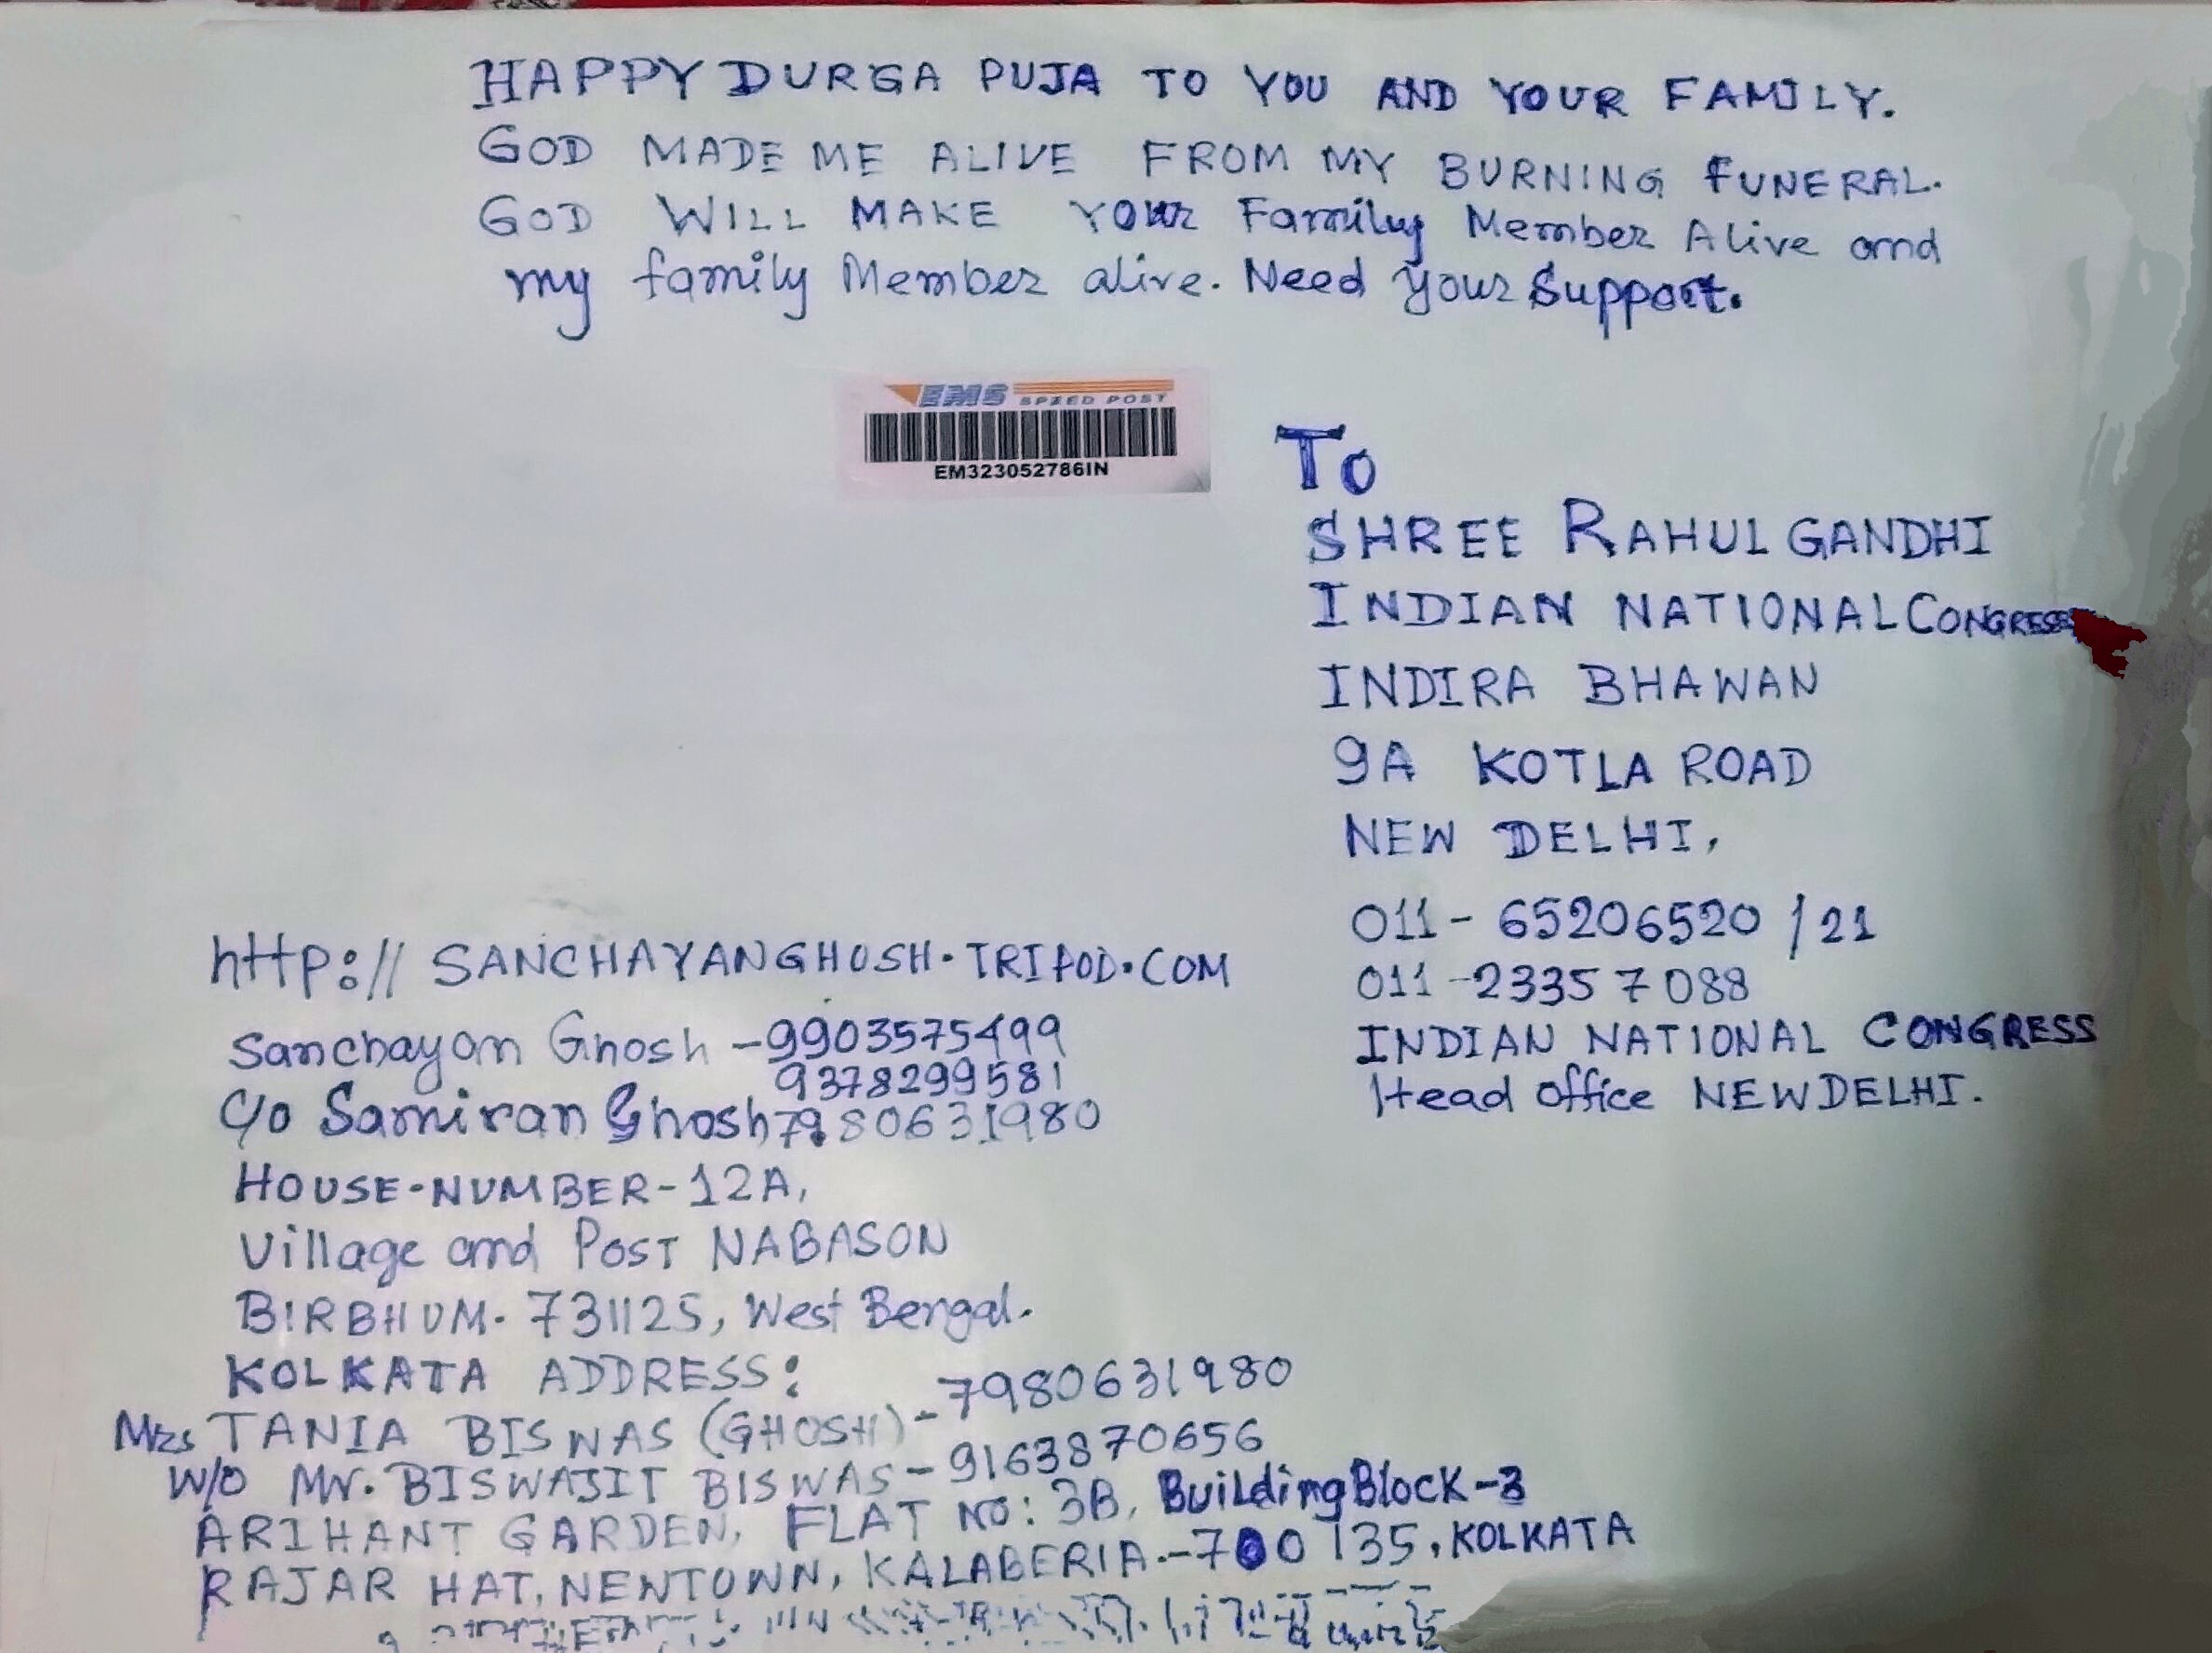 HAPPY DURGA PUJA TO YOU AND YOUR FAMILY.
GOD MADE ME ALIVE FROM MY BURNING FUNERAL.
GOD WILL MAKE YOUR Family Member Alive and
my family Member alive. Need your Support.
EMS SPEED POST
EM323052786IN
To
SHREE RAHUL GANDHI
INDIAN NATIONAL CONGRESS
INDIRA BHAWAN
9A KOTLA ROAD
NEW DELHI,
011-65206520/21
011-23357088
INDIAN NATIONAL CONGRESS
Head office NEW DELHI.
http://SANCHAYANGHOSH.TRIPOD.COM
Sanchayan Ghosh - 9903575499
9378299581
C/o Samiran Ghosh 7980631980
HOUSE-NUMBER-12A,
Village and Post NABASON
BIRBHUM. 731125, West Bengal.
KOLKATA ADDRESS:
Mrs TANIA BISWAS (GHOSH) - 7980631980
W/O Mr. BISWAJIT BISWAS - 9163870656
ARIHANT GARDEN, FLAT NO: 3B, Building Block-3
RAJAR HAT, NEWTOWN, KALABERIA.-700135, KOLKATA